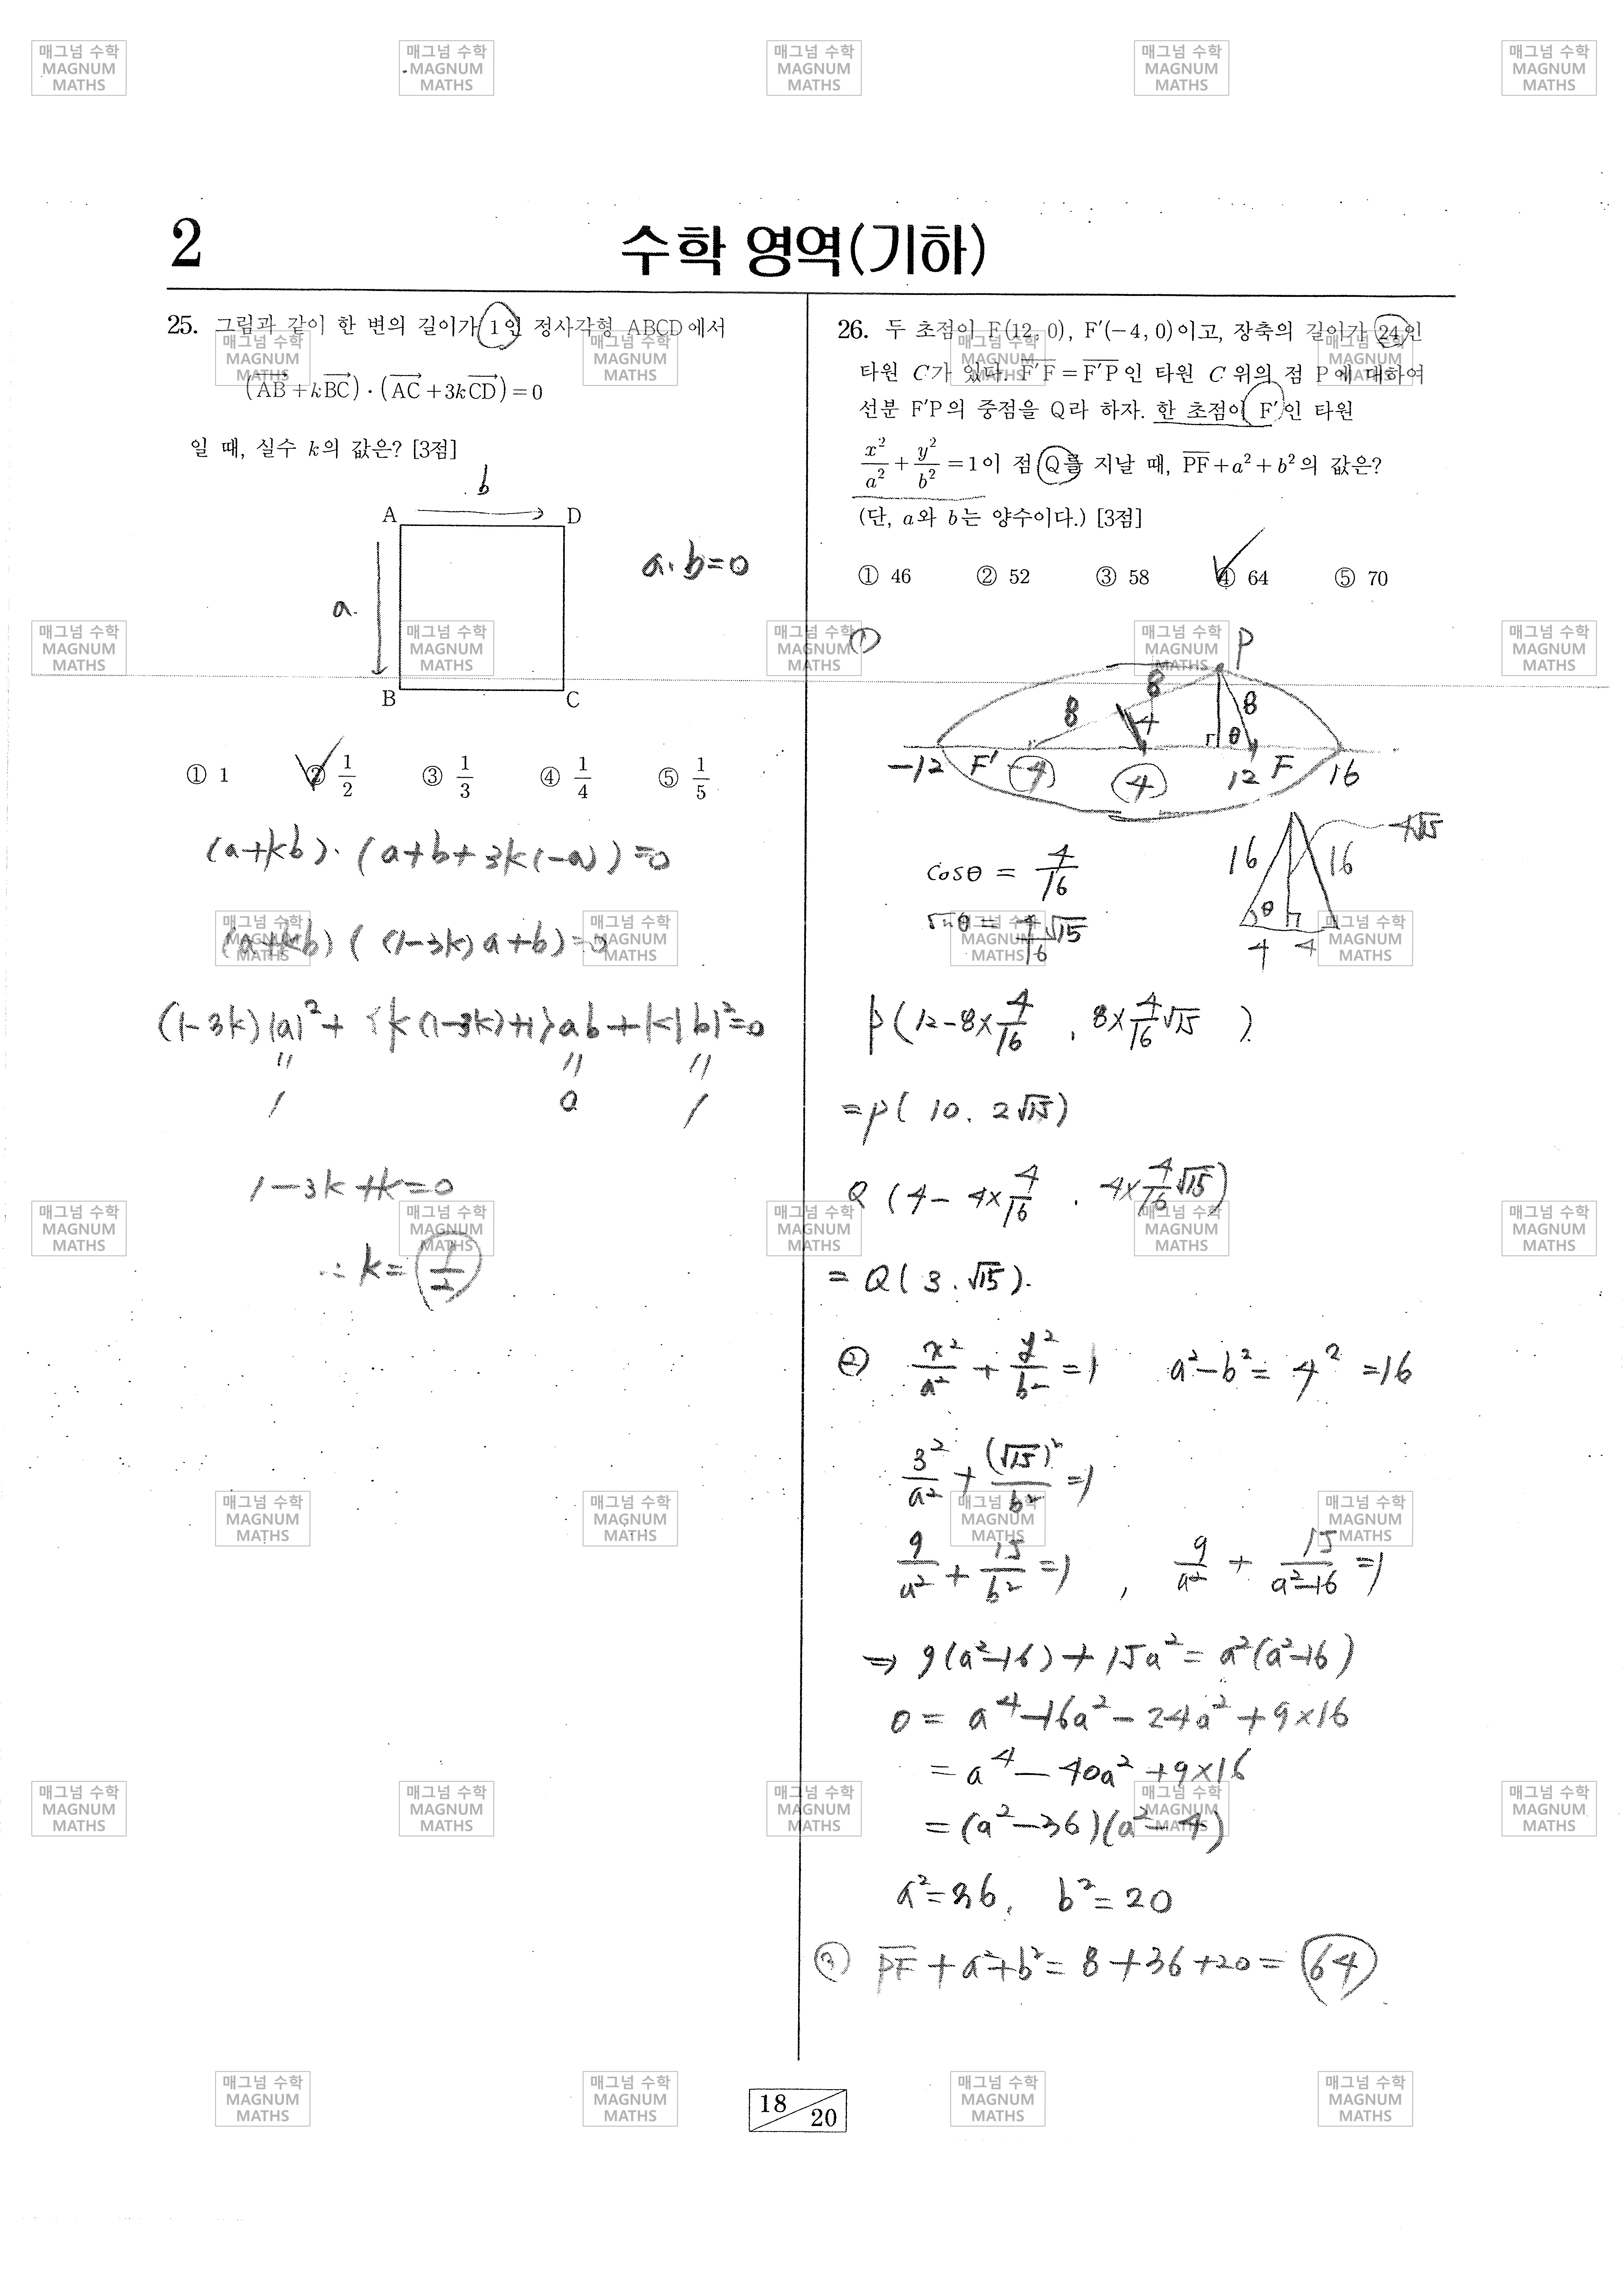 2
수학 영역(기하)
25. 그림과 같이 한 변의 길이가 1인 정사각형 ABCD에서
(AB + kBC) · (AC + 3kCD) = 0
일 때, 실수 k의 값은? [3점]
b
A D
a·b=0
a
B C
① 1 ② 1/2 ③ 1/3 ④ 1/4 ⑤ 1/5
(a+kb)·(a+b+3k(-a))=0
(a+kb)((1-3k)a+b)=0
(1-3k)|a|²+{k(1-3k)+1}ab+k|b|²=0
" " "
1 0 1
1-3k+k=0
∴ k=1/2
26. 두 초점이 F(12, 0), F′(-4, 0)이고, 장축의 길이가 24인
타원 C가 있다. F′F = F′P인 타원 C 위의 점 P에 대하여
선분 F′P의 중점을 Q라 하자. 한 초점이 F′인 타원
x²/a² + y²/b² = 1이 점 Q를 지날 때, PF + a² + b²의 값은?
(단, a와 b는 양수이다.) [3점]
① 46 ② 52 ③ 58 ④ 64 ⑤ 70
①
P
8
8 4 8
θ
-12 F′ -4 4 12 F 16
4√15
16 16
θ
4 4
cosθ = 4/16
sinθ = 4√15/16
P(12-8×4/16, 8×4/16√15)
=P(10, 2√15)
Q(4-4×4/16, 4×4/16√15)
=Q(3, √15).
② x²/a² + y²/b² = 1 a²-b²= 4² =16
3²/a² + (√15)²/b² = 1
9/a² + 15/b² = 1, 9/a² + 15/(a²-16) = 1
→ 9(a²-16)+15a² = a²(a²-16)
0 = a⁴-16a²-24a²+9×16
= a⁴-40a²+9×16
= (a²-36)(a²-4)
a²=36, b²=20
③ PF+a²+b²= 8+36+20= 64
18
20
매그넘 수학
MAGNUM
MATHS